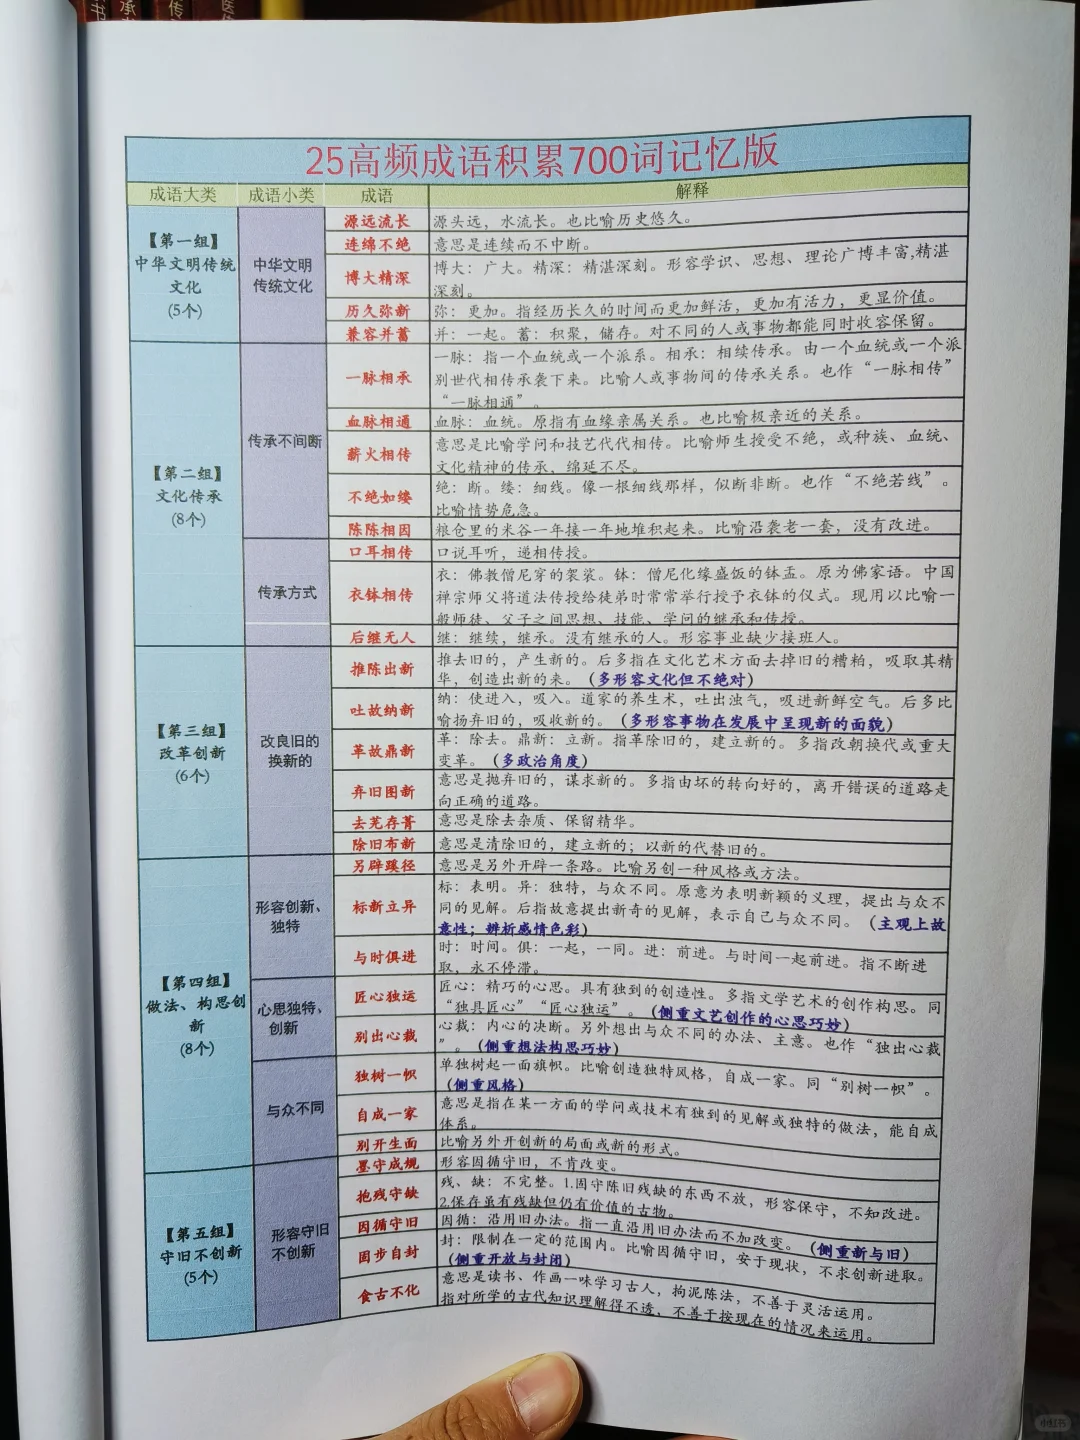 25高频成语积累700词记忆版
成语大类 成语小类 成语 解释
【第一组】
中华文明传统
文化
(5个)
中华文明
传统文化
源远流长 源头远，水流长。也比喻历史悠久。
连绵不绝 意思是连续而不中断。
博大精深 博大：广大。精深：精湛深刻。形容学识、思想、理论广博丰富,精湛
深刻。
历久弥新 弥：更加。指经历长久的时间而更加鲜活，更加有活力，更显价值。
兼容并蓄 并：一起。蓄：积聚，储存。对不同的人或事物都能同时收容保留。
【第二组】
文化传承
(8个)
传承不间断
一脉相承 一脉：指一个血统或一个派系。相承：相续传承。由一个血统或一个派
别世代相传承袭下来。比喻人或事物间的传承关系。也作“一脉相传”
“一脉相通”。
血脉相通 血脉：血统。原指有血缘亲属关系。也比喻极亲近的关系。
薪火相传 意思是比喻学问和技艺代代相传。比喻师生授受不绝，或种族、血统、
文化精神的传承，绵延不尽。
不绝如缕 绝：断。缕：细线。像一根细线那样，似断非断。也作“不绝若线”。
比喻情势危急。
陈陈相因 粮仓里的米谷一年接一年地堆积起来。比喻沿袭老一套，没有改进。
传承方式
口耳相传 口说耳听，递相传授。
衣钵相传 衣：佛教僧尼穿的袈裟。钵：僧尼化缘盛饭的钵盂。原为佛家语。中国
禅宗师父将道法传授给徒弟时常常举行授予衣钵的仪式。现用以比喻一
般师徒、父子之间思想、技能、学问的继承和传授。
后继无人 继：继续，继承。没有继承的人。形容事业缺少接班人。
【第三组】
改革创新
(6个)
改良旧的
换新的
推陈出新 推去旧的，产生新的。后多指在文化艺术方面去掉旧的糟粕，吸取其精
华，创造出新的来。（多形容文化但不绝对）
吐故纳新 纳：使进入，吸入。道家的养生术，吐出浊气，吸进新鲜空气。后多比
喻扬弃旧的，吸收新的。（多形容事物在发展中呈现新的面貌）
革故鼎新 革：除去。鼎新：立新。指革除旧的，建立新的。多指改朝换代或重大
变革。（多政治角度）
弃旧图新 意思是抛弃旧的，谋求新的。多指由坏的转向好的，离开错误的道路走
向正确的道路。
去芜存菁 意思是除去杂质、保留精华。
除旧布新 意思是清除旧的，建立新的；以新的代替旧的。
【第四组】
做法、构思创
新
(8个)
形容创新、
独特
另辟蹊径 意思是另外开辟一条路。比喻另创一种风格或方法。
标新立异 标：表明。异：独特，与众不同。原意为表明新颖的义理，提出与众不
同的见解。后指故意提出新奇的见解，表示自己与众不同。（主观上故
意性；辨析感情色彩）
与时俱进 时：时间。俱：一起，一同。进：前进。与时间一起前进。指不断进
取，永不停滞。
心思独特、
创新
匠心独运 匠心：精巧的心思。具有独到的创造性。多指文学艺术的创作构思。同
“独具匠心”“匠心独运”。（侧重文艺创作的心思巧妙）
别出心裁 心裁：内心的决断。另外想出与众不同的办法、主意。也作“独出心裁
”。（侧重想法构思巧妙）
与众不同
独树一帜 单独树起一面旗帜。比喻创造独特风格，自成一家。同“别树一帜”。
（侧重风格）
自成一家 意思是指在某一方面的学问或技术有独到的见解或独特的做法，能自成
体系。
别开生面 比喻另外开创新的局面或新的形式。
【第五组】
守旧不创新
(5个)
形容守旧
不创新
墨守成规 形容因循守旧，不肯改变。
抱残守缺 残、缺：不完整。1.固守陈旧残缺的东西不放，形容保守，不知改进。
2.保存虽有残缺但仍有价值的古物。
因循守旧 因循：沿用旧办法。指一直沿用旧办法而不加改变。（侧重新与旧）
固步自封 封：限制在一定的范围内。比喻因循守旧，安于现状，不求创新进取。
（侧重开放与封闭）
食古不化 意思是读书、作画一味学习古人，拘泥陈法，不善于灵活运用。
指对所学的古代知识理解得不透，不善于按现在的情况来运用。
小红书